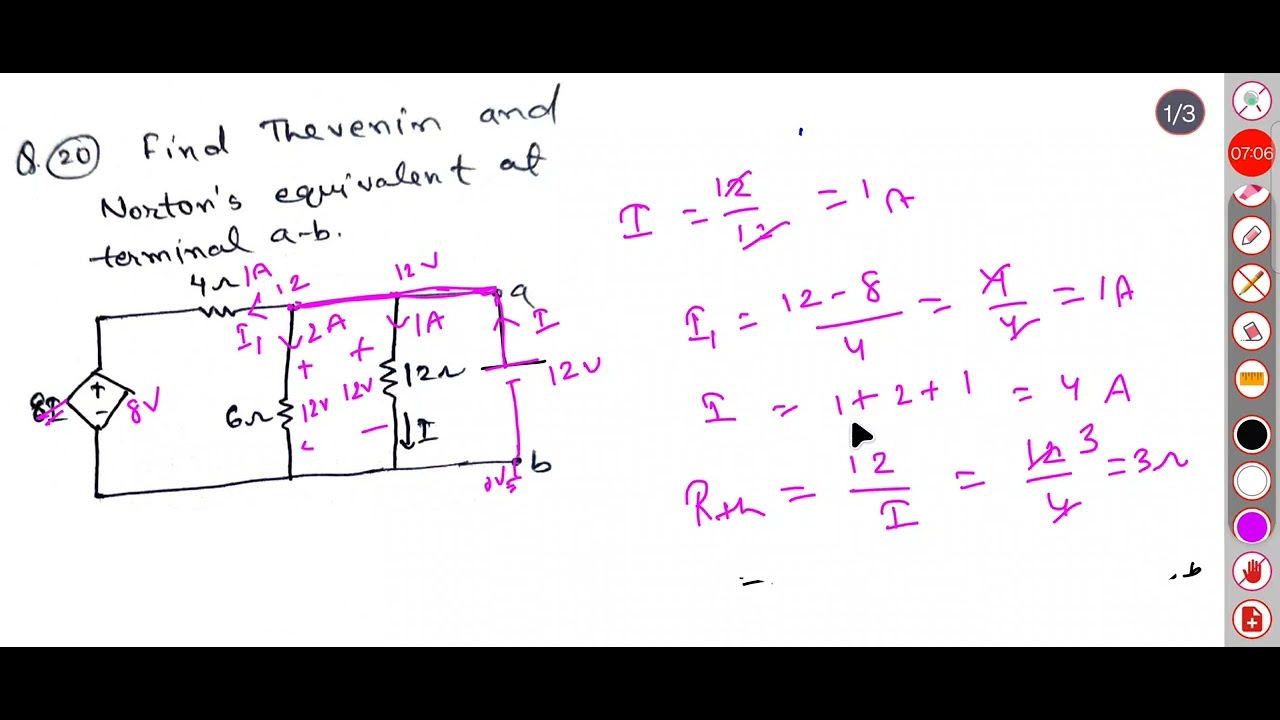 Q. 20 Find Thevenin and
Norton's equivalent at
terminal a-b.
1/3
07:06
4Ω 1A 12 12V a
I₁ 2A 1A I
+ +
8I + - 8V 6Ω 12V 12V 12Ω 12V
- I b
I = 12/12 = 1A
I₁ = 12-8/4 = 4/4 = 1A
I = 1+2+1 = 4A
Rth = 12/I = 12/4 3 = 3Ω